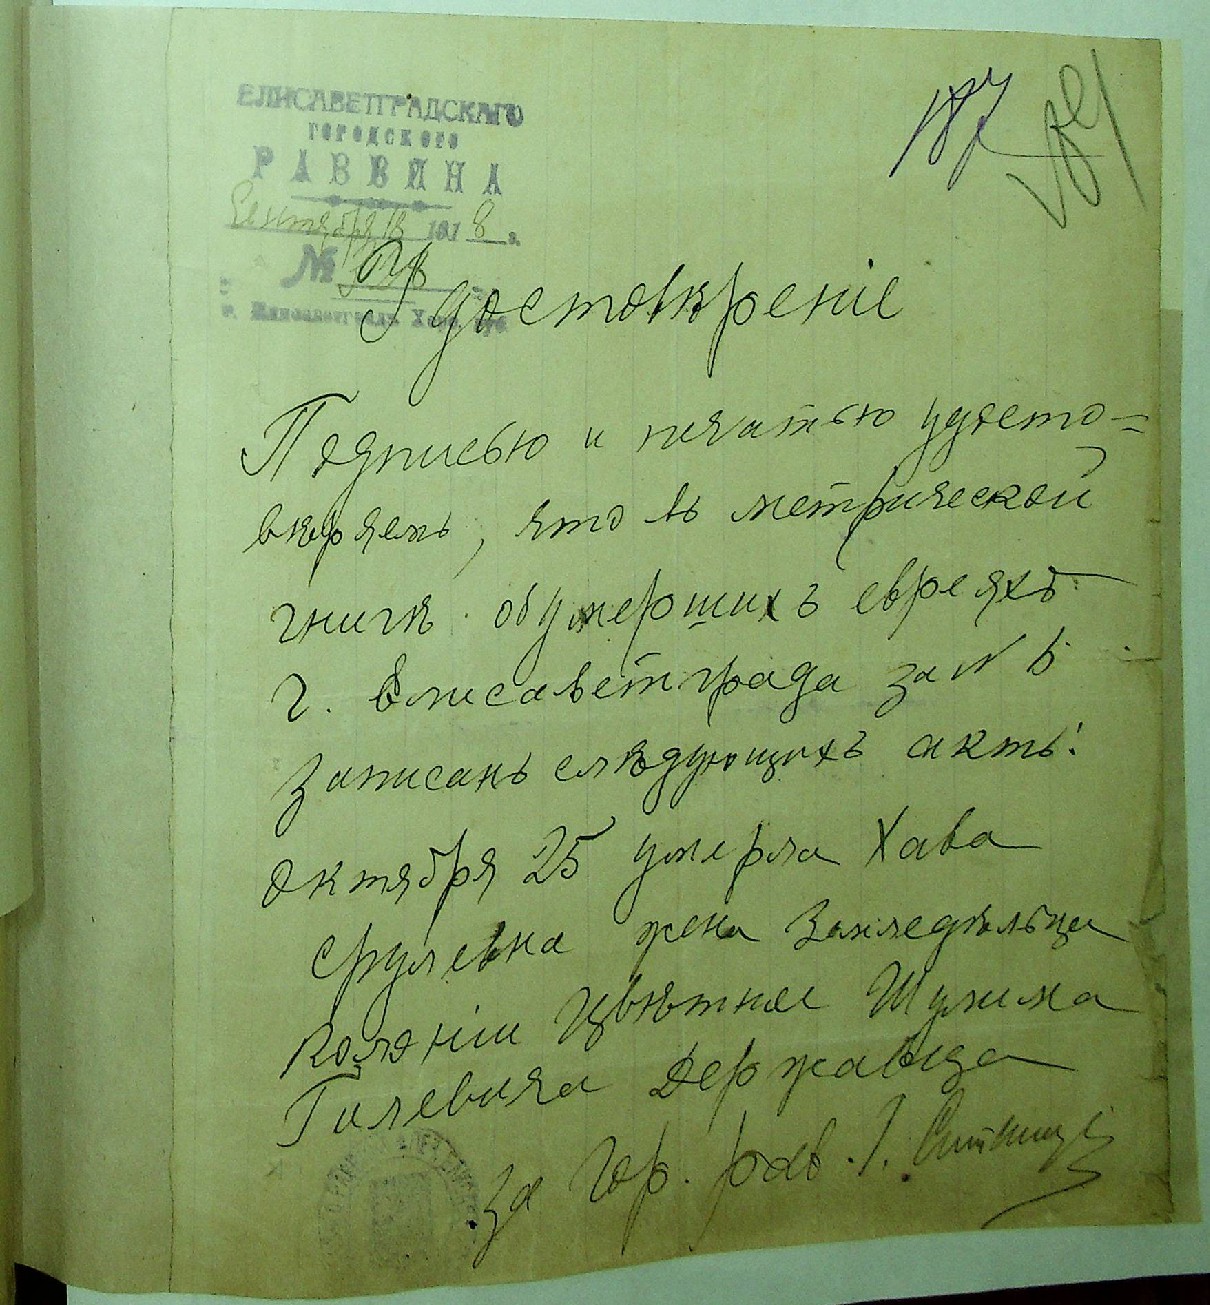 187
ЕЛИСАВЕТГРАДСКАГО
ГОРОДСКОГО
РАВВИНА
Сентября 18 1918 г.
№
г. Елисаветградъ Херс. губ.
Удостовѣреніе
Подписью и печатью удосто=
вѣряемъ, что въ метрической
книгѣ объ умершихъ евреяхъ
г. Елисаветграда за №
записанъ слѣдующихъ актъ:
Октября 25 умерла Хава
Срулевна жена Земледѣльца
колоніи Цвѣтное Шулима
Гилевича Державца
за Гор. рав. І.